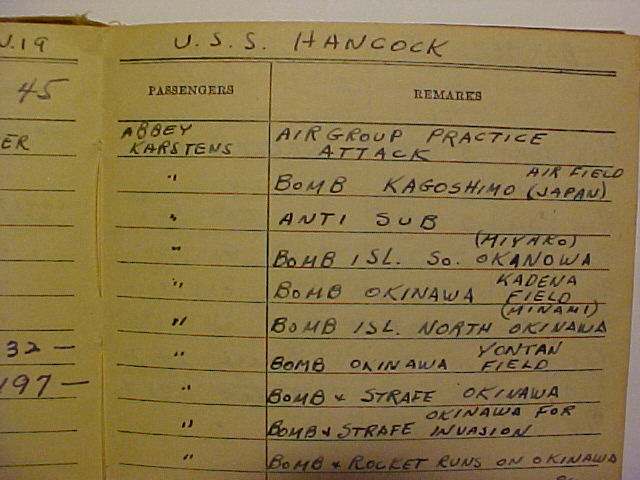 J.19 U.S.S. HANCOCK
45 PASSENGERS REMARKS
ER ABBEY AIRGROUP PRACTICE
KARSTENS ATTACK
AIR FIELD
" BOMB KAGOSHIMO (JAPAN)
" ANTI SUB
(MIYAKO)
" BOMB ISL. SO. OKANOWA
KADENA
" BOMB OKINAWA FIELD
(MINAMI)
" BOMB ISL. NORTH OKINAWA
32 — YONTAN
" BOMB OKINAWA FIELD
197 — " BOMB & STRAFE OKINAWA
OKINAWA FOR
" BOMB & STRAFE INVASION
" BOMB & ROCKET RUNS ON OKINAWA